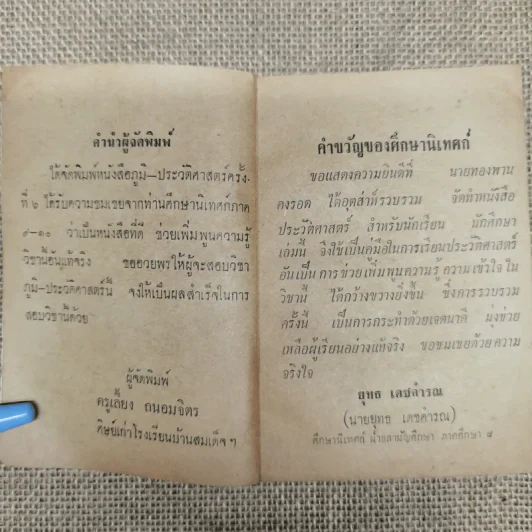 คำนำผู้จัดพิมพ์
ได้จัดพิมพ์หนังสือภูมิ—ประวัติศาสตร์ครั้ง-
ที่ ๖ ได้รับความชมเชยจากท่านศึกษานิเทศก์ภาค
๙—๑๐ ว่าเป็นหนังสือที่ดี ช่วยเพิ่มพูนความรู้
วิชานี้อันแท้จริง ขออวยพรให้ผู้จะสอบวิชา
ภูมิ—ประวัติศาสตร์นี้ จงให้เป็นผลสำเร็จในการ
สอบวิชานี้ด้วย
ผู้จัดพิมพ์
ครูเลี่ยง ถนอมจิตร
ศิษย์เก่าโรงเรียนบ้านสมเด็จฯ
คำขวัญของศึกษานิเทศก์
ขอแสดงความยินดีที่ นายทองพาน
คงรอด ได้อุตส่าห์รวบรวม จัดทำหนังสือ
ประวัติศาสตร์ สำหรับนักเรียน นักศึกษา
เล่มนี้ จึงใช้เป็นคู่มือในการเรียนประวัติศาสตร์
อันเป็น การช่วยเพิ่มพูนความรู้ ความเข้าใจ ใน
วิชานี้ ได้กว้างขวางยิ่งขึ้น ซึ่งการรวบรวม
ครั้งนี้ เป็นการกระทำด้วยเจตนาดี มุ่งช่วย
เหลือผู้เรียนอย่างแท้จริง ขอชมเชยด้วยความ
จริงใจ
ยุทธ เดชคำรณ
(นายยุทธ เดชคำรณ)
ศึกษานิเทศก์ ฝ่ายสามัญศึกษา ภาคศึกษา ๘